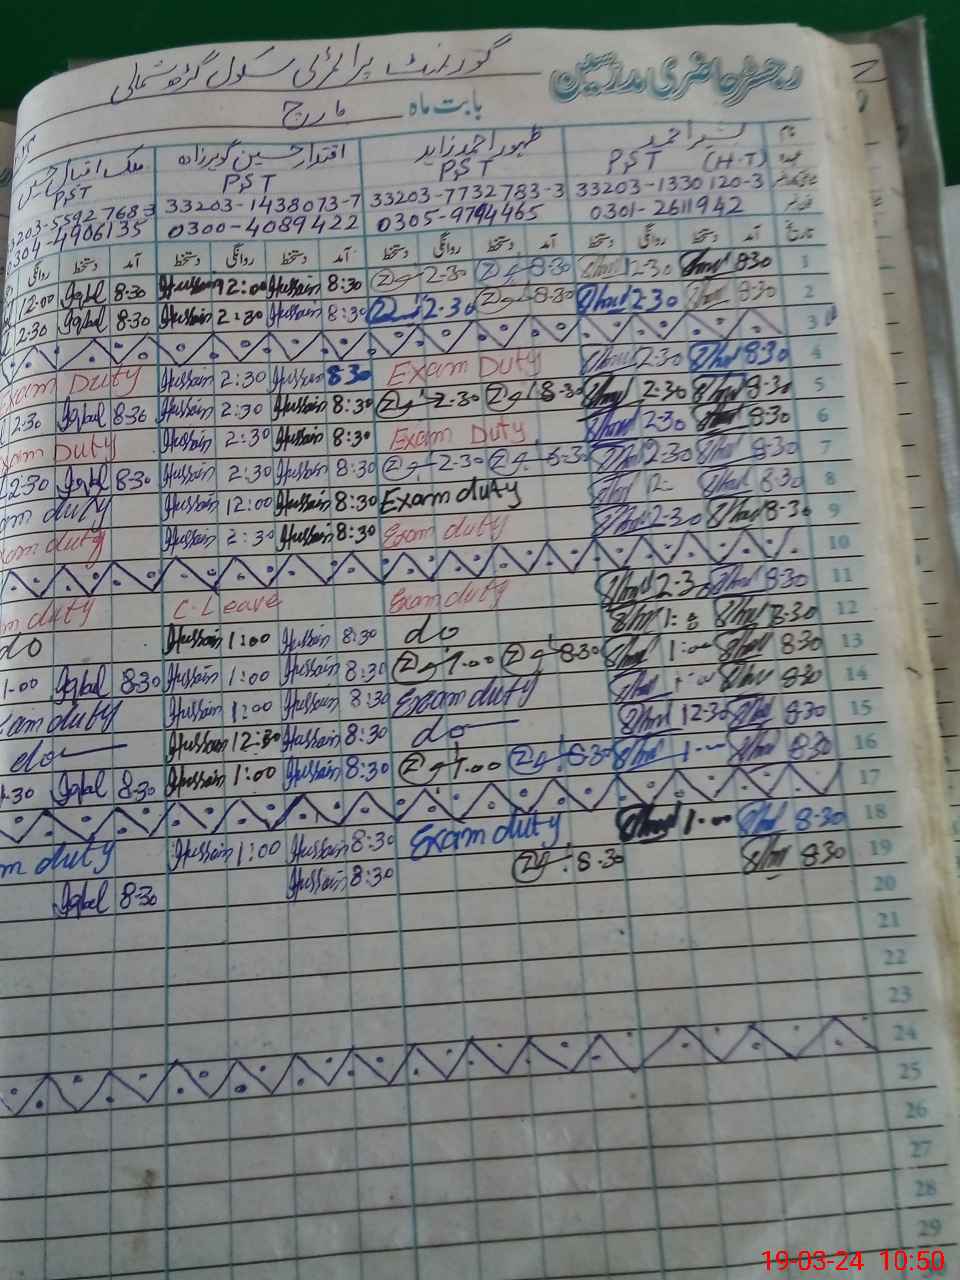 رجسٹر حاضری مدرسین گورنمنٹ پرائمری سکول گڑھ شمالی
بابت ماہ مارچ
نام بشیر احمد ظہور احمد زاہد اقتدار حسین ملک اقبال حسین
عہدہ PST (H-T) PST PST PST
33203-1330120-3 33203-7732783-3 33203-1438073-7 3203-5592768-3
0301-2611942 0305-9794465 0300-4089422 304-4906135
تاریخ آمد دستخط روانگی دستخط آمد دستخط روانگی دستخط آمد دستخط روانگی دستخط آمد دستخط روانگی
1 8:30 12-30 8-30 2-30 8:30 Hussain 12:00 Hussain 8-30 Iqbal 12-00
2 8:30 2-30 8-30 2-30 8:30 Hussain 2:30 Hussain 8-30 Iqbal 2-30
3
4 8-30 2-30 Exam Duty 8-30 Hussain 2:30 Hussain Exam Duty
5 8-30 2-30 8-30 2-30 8:30 Hussain 2:30 Hussain 8-30 Iqbal 2-30
6 8-30 2-30 Exam Duty 8:30 Hussain 2:30 Hussain Exam Duty
7 8-30 2-30 8-30 2-30 8:30 Hussain 2:30 Hussain 8-30 Iqbal 2-30
8 8-30 12- Exam duty 8:30 Hussain 12:00 Hussain am duty
9 8-30 2-30 Exam duty 8:30 Hussain 2:30 Hussain Exam duty
10
11 8-30 2-30 Exam duty C-Leave m duty
12 8-30 1:00 do 8:30 Hussain 1:00 Hussain do
13 8-30 1:00 8-30 1-00 8:30 Hussain 1:00 Hussain 8-30 Iqbal 1-00
14 8-30 Exam duty 8:30 Hussain 1:00 Hussain Exam duty
15 8-30 12-30 do 8:30 Hussain 12:30 Hussain do
16 8-30 1-00 8-30 1-00 8:30 Hussain 1:00 Hussain 8-30 Iqbal -30
17
18 8-30 1-00 Exam duty 8:30 Hussain 1:00 Hussain m duty
19 8-30 8-30 8:30 Hussain 8-30 Iqbal
20
21
22
23
24
25
26
27
28
29
19-03-24 10:50